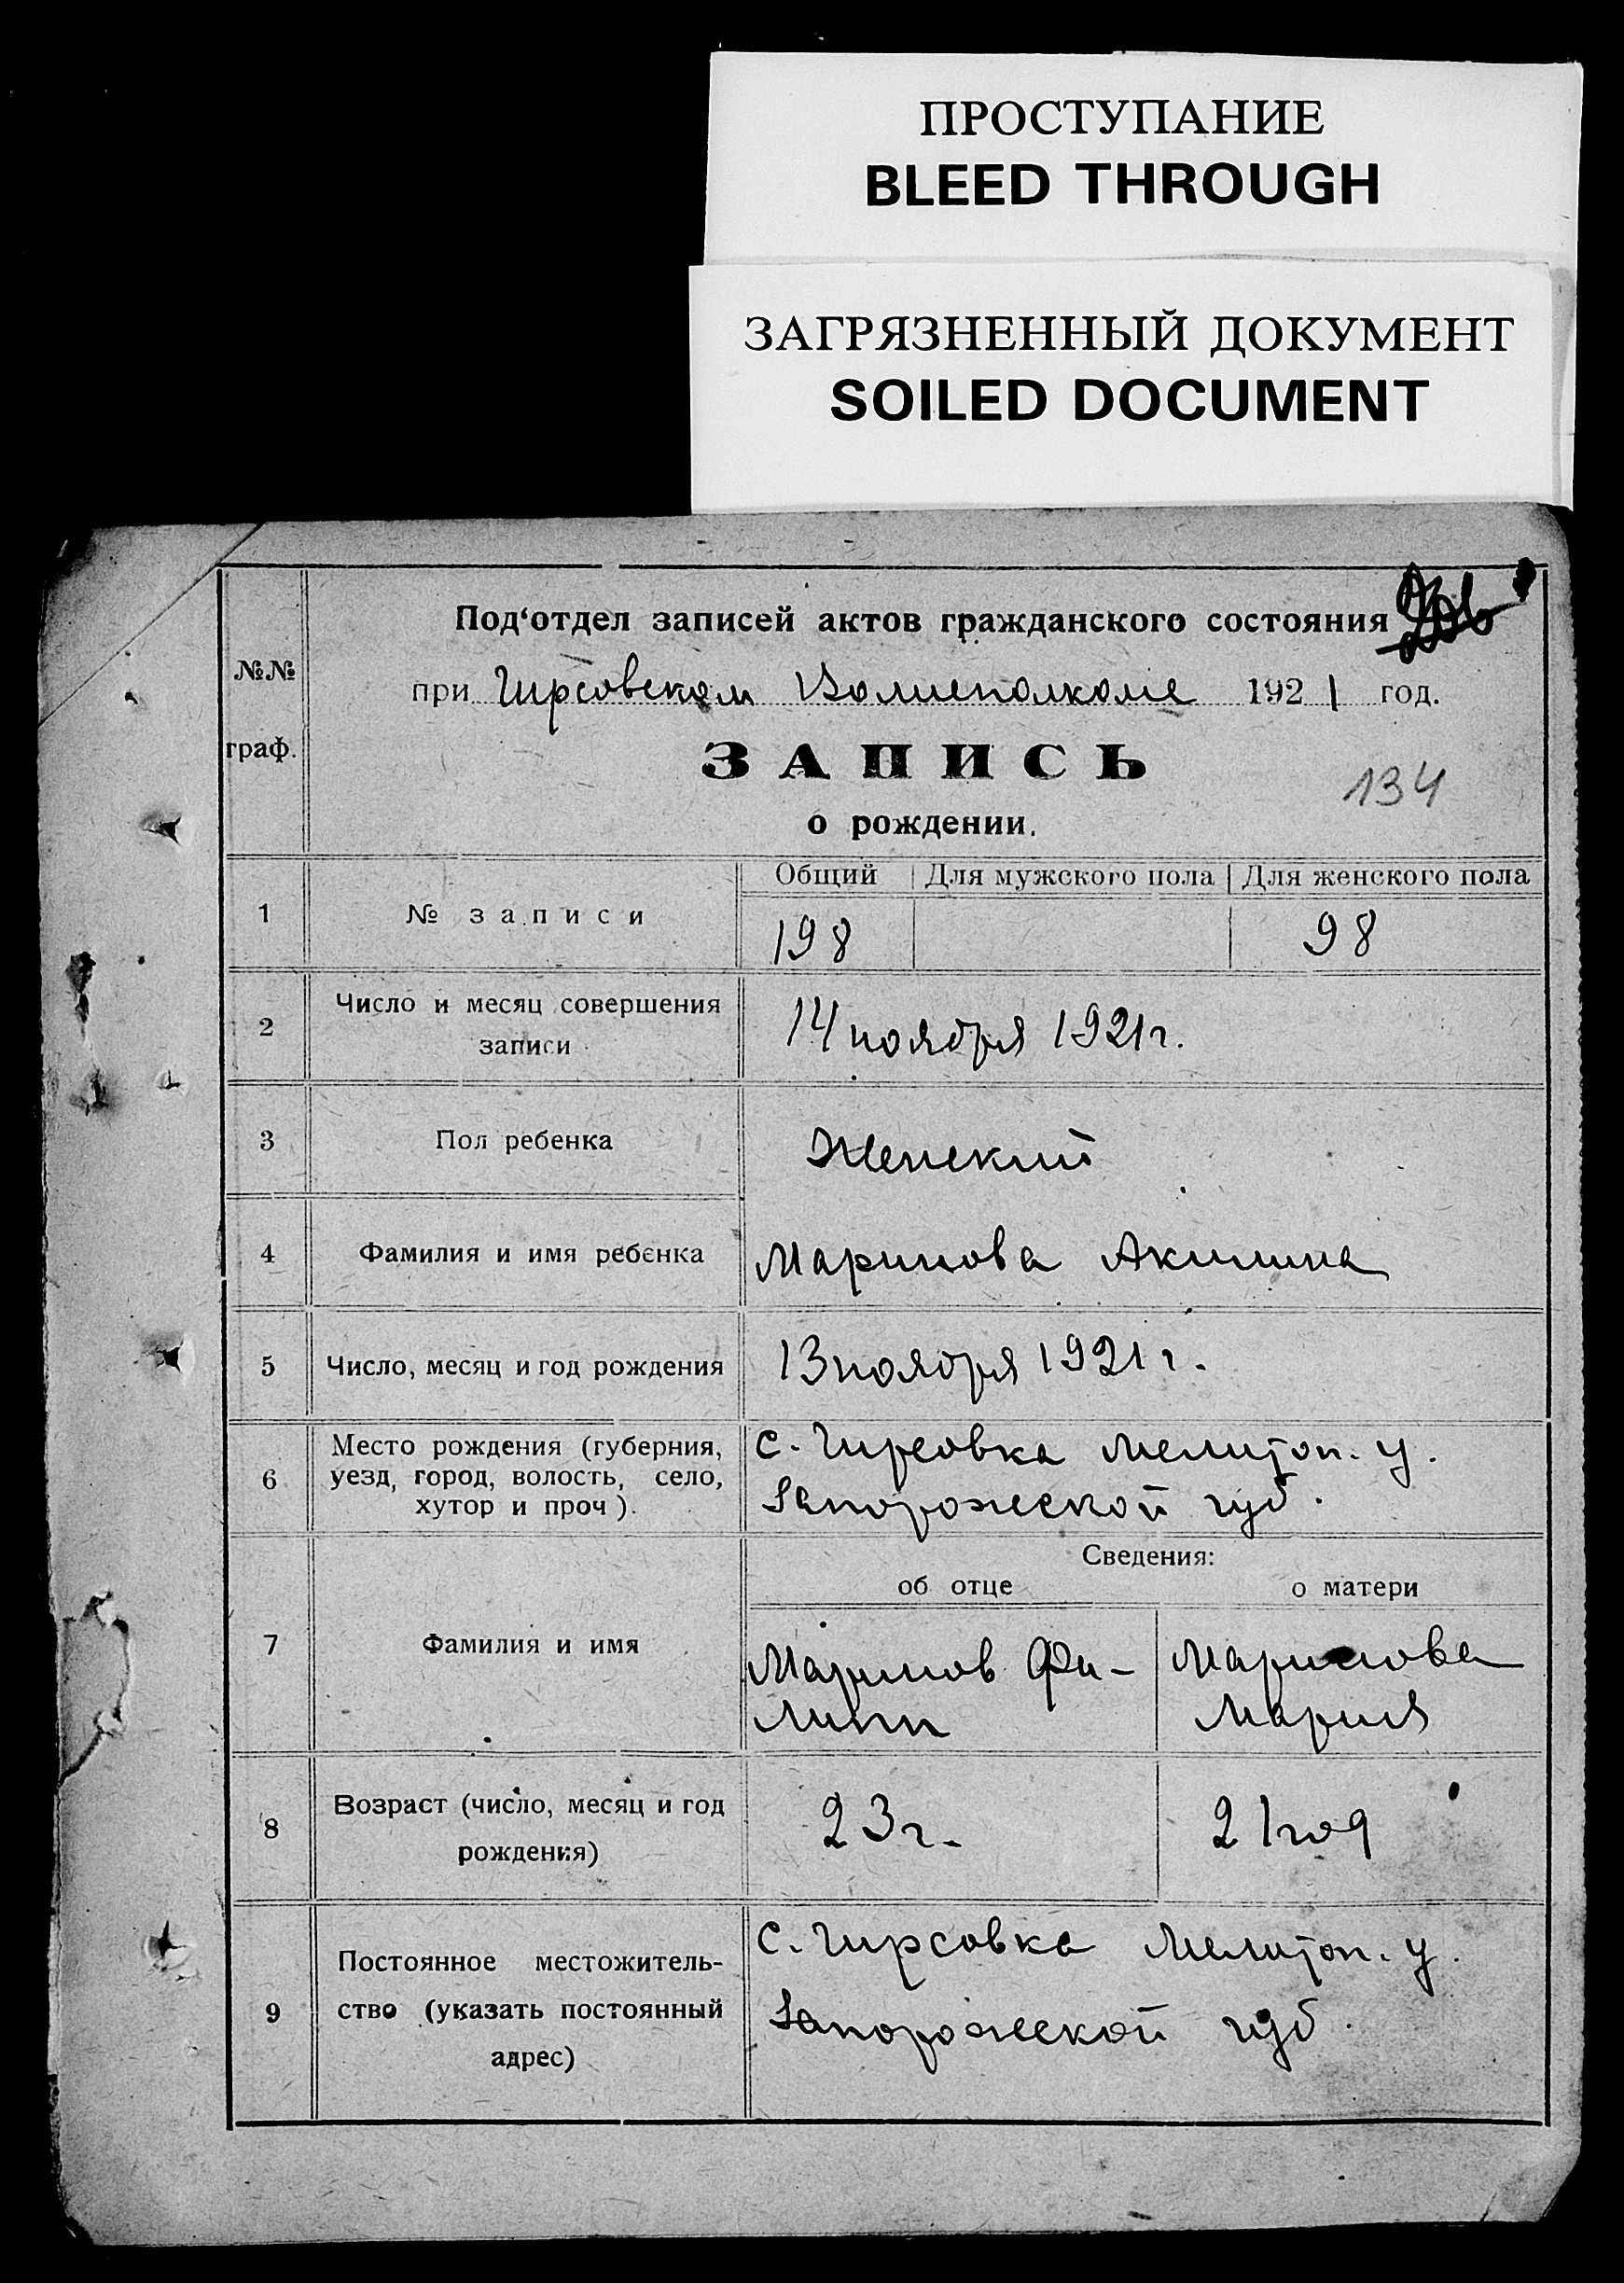 ПРОСТУПАНИЕ
BLEED THROUGH
ЗАГРЯЗНЕННЫЙ ДОКУМЕНТ
SOILED DOCUMENT
№№
граф.
Под‘отдел записей актов гражданского состояния
при Гирсовском Волисполкоме 1921 год.
ЗАПИСЬ
134
о рождении.
Общий Для мужского пола Для женского пола
1 № записи 198 98
2 Число и месяц совершения
записи
14 ноября 1921 г.
3 Пол ребенка Женский
4 Фамилия и имя ребенка Маринова Акилина
5 Число, месяц и год рождения 13 ноября 1921 г.
6 Место рождения (губерния,
уезд, город, волость, село,
хутор и проч).
с. Гирсовка Мелитоп. у.
Запорожской губ.
Сведения:
об отце о матери
7 Фамилия и имя
Маринов Фи-
липп
Маринова
Мария
8 Возраст (число, месяц и год
рождения)
23 г. 21 год
9 Постоянное местожитель-
ство (указать постоянный
адрес)
с. Гирсовка Мелитоп. у.
Запорожской губ.